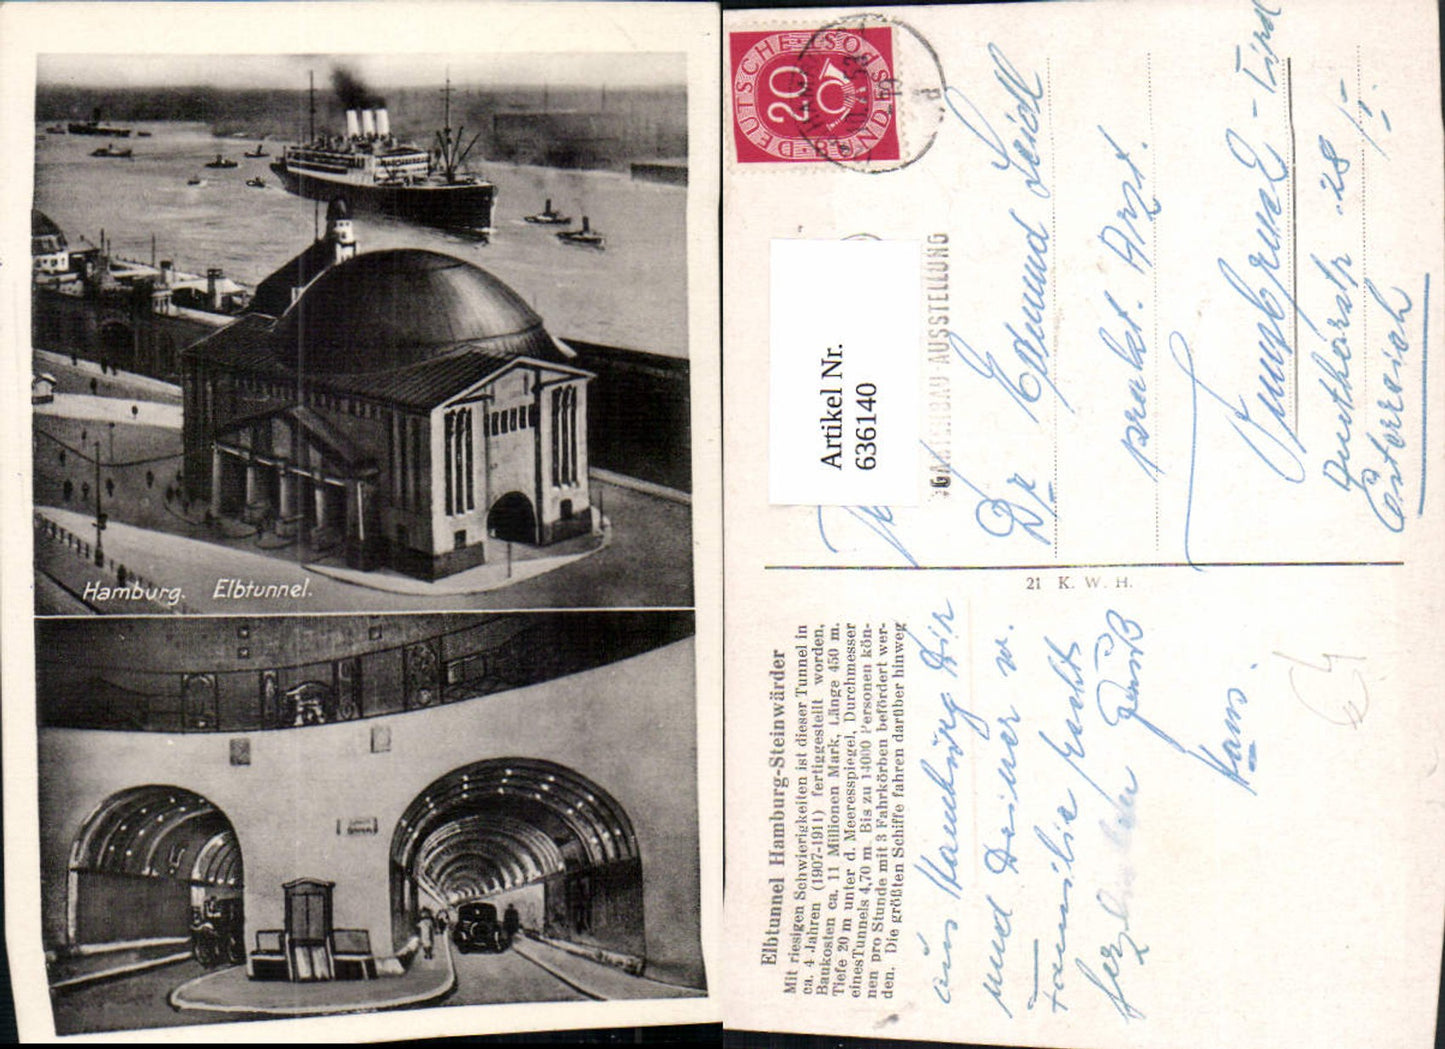 Hamburg. Elbtunnel.
DEUTSCHE BUNDESPOST
20
53
GARTENBAU-AUSSTELLUNG
Artikel Nr.
636140
Dr Edmund Seidl
prakt. Arzt.
Österreich
21 K. W. H.
Elbtunnel Hamburg-Steinwärder
Mit riesigen Schwierigkeiten ist dieser Tunnel in
ca. 4 Jahren (1907-1911) fertiggestellt worden,
Baukosten ca. 11 Millionen Mark, Länge 450 m.
Tiefe 20 m unter d. Meeresspiegel, Durchmesser
eines Tunnels 4,70 m. Bis zu 14000 Personen kön-
nen pro Stunde mit 3 Fahrkörben befördert wer-
den. Die größten Schiffe fahren darüber hinweg
aus Hamburg Dir
und Deiner w.
Familie recht
herzlichen Gruß
Hans.